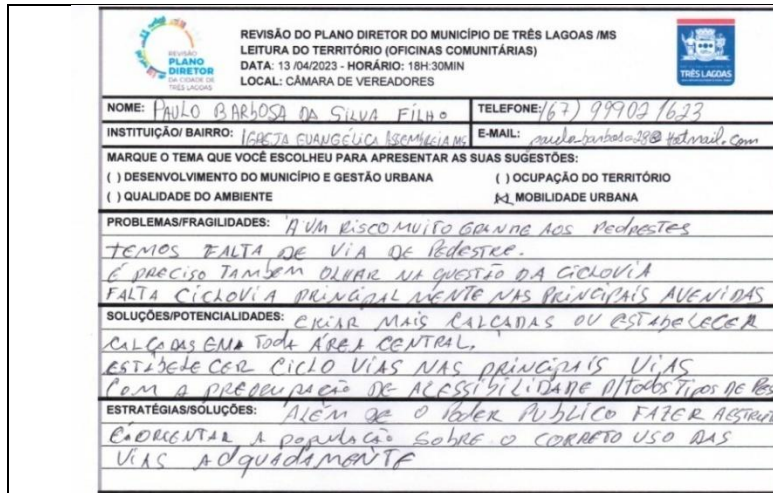 REVISÃO
PLANO
DIRETOR
DA CIDADE DE
TRÊS LAGOAS
REVISÃO DO PLANO DIRETOR DO MUNICÍPIO DE TRÊS LAGOAS /MS
LEITURA DO TERRITÓRIO (OFICINAS COMUNITÁRIAS)
DATA: 13 /04/2023 - HORÁRIO: 18H:30MIN
LOCAL: CÂMARA DE VEREADORES
TRÊS LAGOAS
NOME: PAULO BARBOSA DA SILVA FILHO TELEFONE: (67) 999021623
INSTITUIÇÃO/ BAIRRO: IGREJA EVANGÉLICA ASSEMBLEIA MS E-MAIL: paulo.barbosa28@hotmail.com
MARQUE O TEMA QUE VOCÊ ESCOLHEU PARA APRESENTAR AS SUAS SUGESTÕES:
( ) DESENVOLVIMENTO DO MUNICÍPIO E GESTÃO URBANA ( ) OCUPAÇÃO DO TERRITÓRIO
( ) QUALIDADE DO AMBIENTE (X) MOBILIDADE URBANA
PROBLEMAS/FRAGILIDADES: A UM RISCO MUITO GRANDE AOS PEDRESTES
TEMOS FALTA DE VIA DE PEDESTRE.
É PRECISO TAMBEM OLHAR NA QUESTÃO DA CICLOVIA
FALTA CICLOVIA PRINCIPALMENTE NAS PRINCIPAIS AVENIDAS
SOLUÇÕES/POTENCIALIDADES: CRIAR MAIS CALÇADAS OU ESTABELECER
CALÇADAS EMA TODA ÁREA CENTRAL.
ESTABELECER CICLO VIAS NAS PRINCIPAIS VIAS
COM A PREOCUPAÇÃO DE ACESSIBILIDADE P/TODOS TIPOS DE PES
ESTRATÉGIAS/SOLUÇÕES: ALÉM DE O PODER PUBLICO FAZER
E ORIENTAR A POPULAÇÃO SOBRE O CORRETO USO DAS
VIAS ADQUADAMENTE